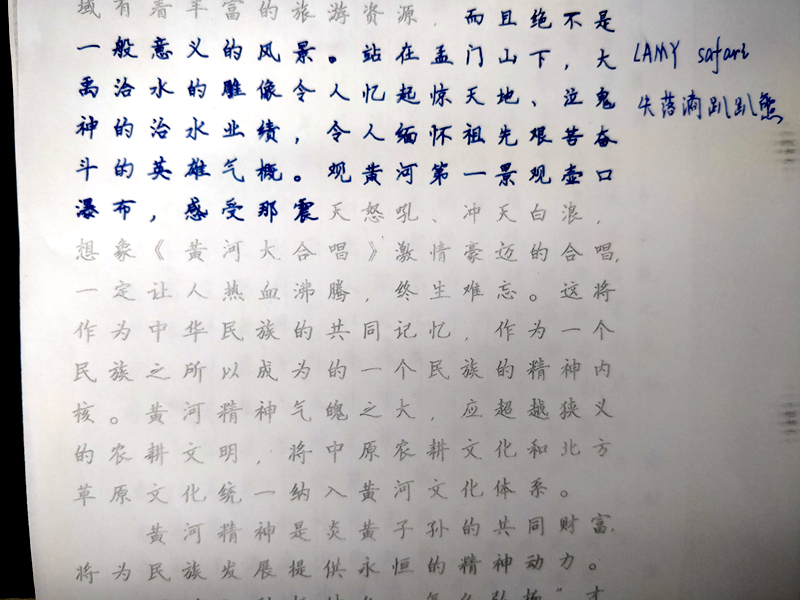 域有着丰富的旅游资源，而且绝不是
一般意义的风景。站在孟门山下，大
禹治水的雕像令人忆起惊天地、泣鬼
神的治水业绩，令人缅怀祖先艰苦奋
斗的英雄气概。观黄河第一景观壶口
瀑布，感受那震天怒吼、冲天白浪，
想象《黄河大合唱》激情豪迈的合唱，
一定让人热血沸腾，终生难忘。这将
作为中华民族的共同记忆，作为一个
民族之所以成为的一个民族的精神内
核。黄河精神气魄之大，应超越狭义
的农耕文明，将中原农耕文化和北方
草原文化统一纳入黄河文化体系。
黄河精神是炎黄子孙的共同财富，
将为民族发展提供永恒的精神动力。
LAMY safari
失落滴趴趴熊